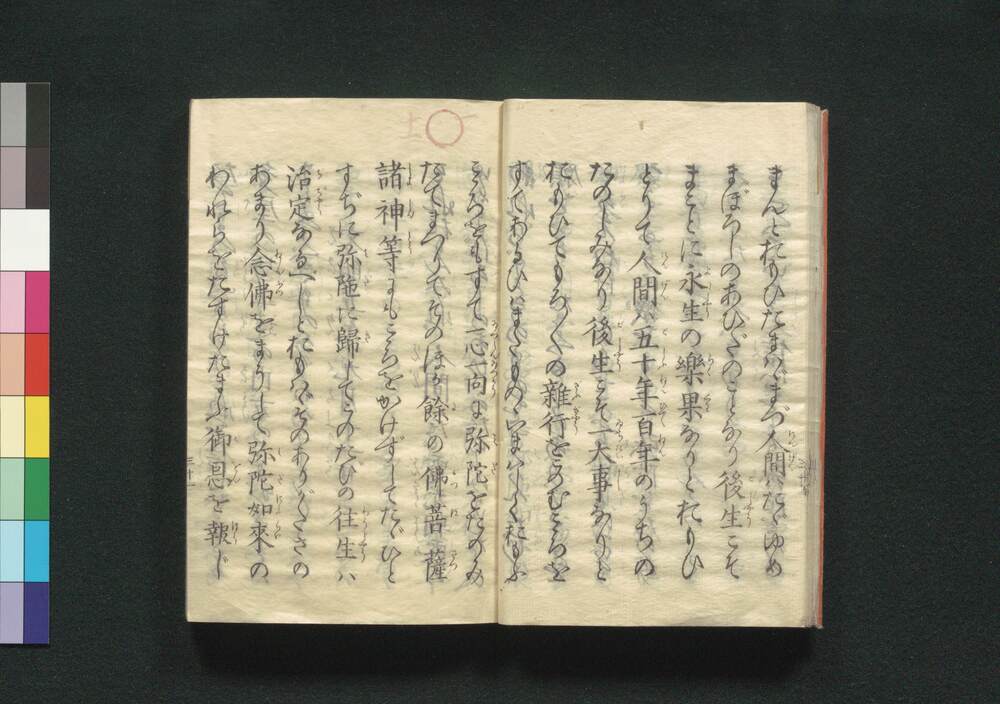 まんとおもひたまはゞまづ人間はたゞゆめ
まぼろしのあひだのことなり後生こそ
まことに永生の樂果なりとおもひ
とりて人間は五十年百年のうちの
たのしみなり後生こそ一大事なりと
おもひてもろ〳〵の雜行をこのむこゝろを
すてあるひはまたものゝいまはしくおもふ
こゝろをもすて一心一向に弥陀をたのみ
たてまつりてそのほか餘の佛菩薩
諸神等にもこゝろをかけずしてたゞひと
すぢに弥陀に歸してこのたびの往生は
治定なるべしとおもはゞそのありがたさの
あまり念佛をまうして弥陀如來の
われらをたすけたまふ御恩を報じ
上
三十一